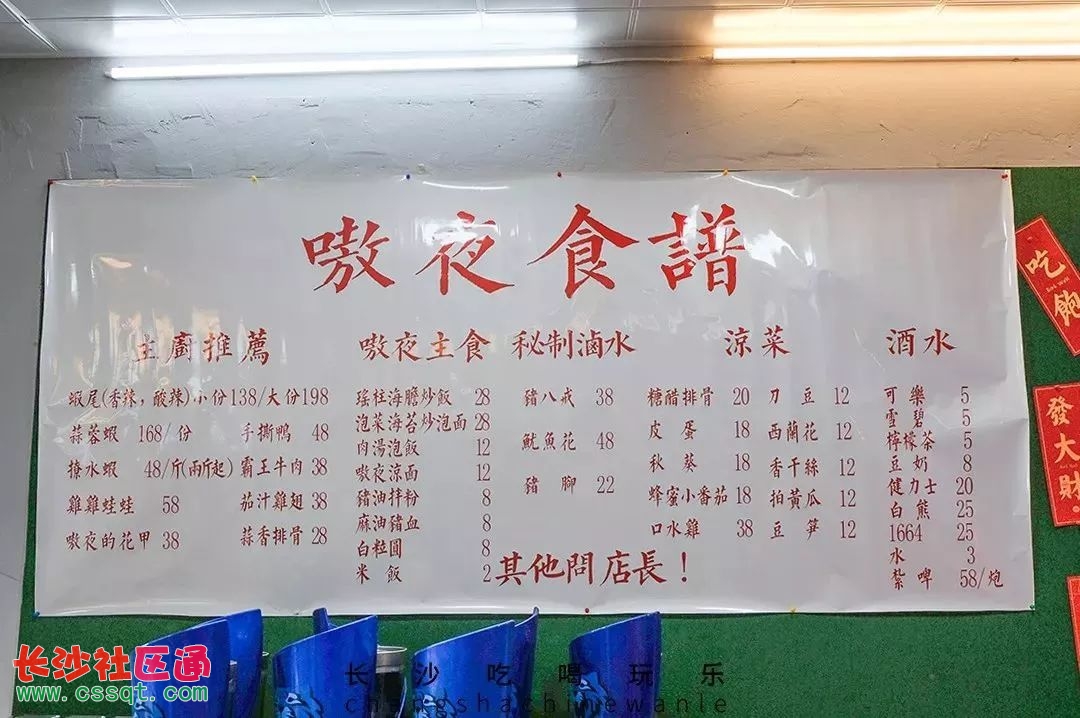 嗷夜食譜
主廚推薦
蝦尾(香辣，酸辣)小份138/大份198
蒜蓉蝦 168/份 手撕鴨 48
撩水蝦 48/斤(兩斤起) 霸王牛肉 38
雞雞蛙蛙 58 茄汁雞翅 38
嗷夜的花甲 38 蒜香排骨 28
嗷夜主食
瑤柱海膽炒飯 28
泡菜海苔炒泡面 28
肉湯泡飯 12
嗷夜涼面 12
豬油拌粉 8
麻油豬血 8
白粒圓 8
米飯 2
秘制滷水
豬八戒 38
魷魚花 48
豬腳 22
涼菜
糖醋排骨 20 刀豆 12
皮蛋 18 西蘭花 12
秋葵 18 香干絲 12
蜂蜜小番茄 18 拍黃瓜 12
口水雞 38 豆筍 12
酒水
可樂 5
雪碧 5
檸檬茶 5
豆奶 8
健力士 20
白熊 25
1664 25
水 3
紮啤 58/炮
其他問店長！
吃飽
發大財
长沙社区通
www.cssqt.com
长沙吃喝玩乐
changshachihewanle